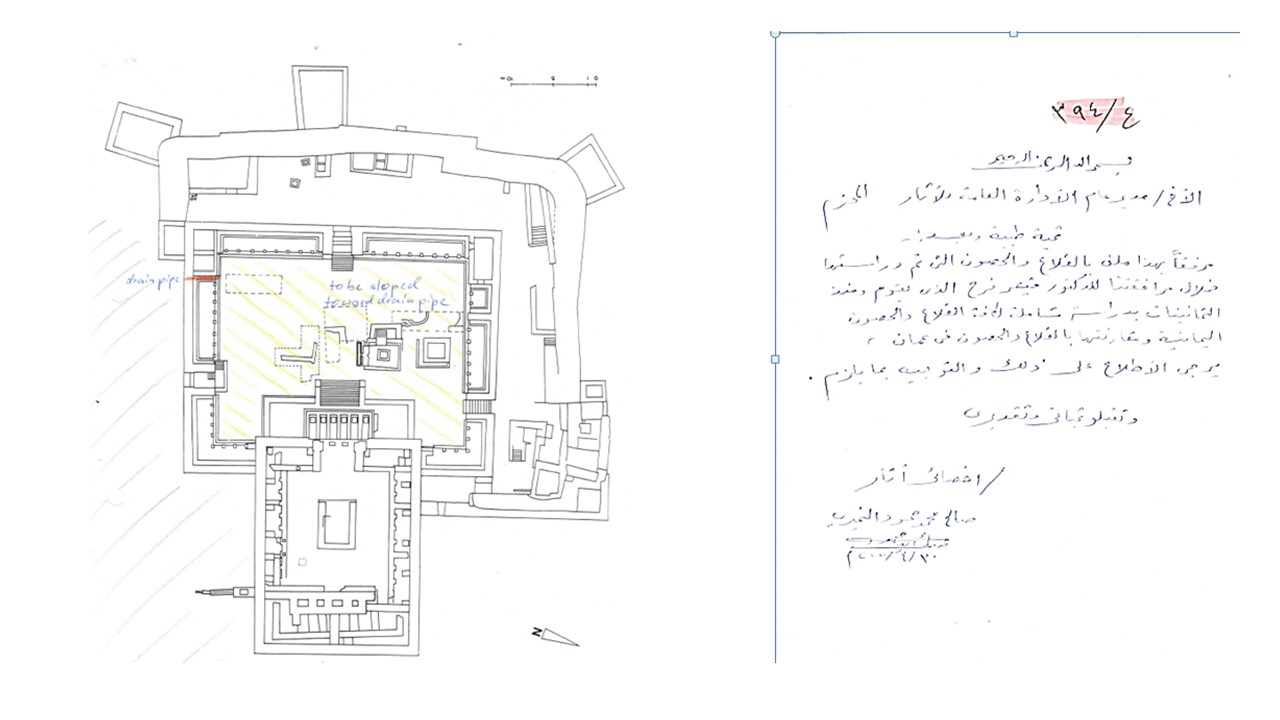 drain pipe
to be sloped
toward drain pipe
N
٣٩٤/٤
بسم الله الرحمن الرحيم
الأخ/ مدير عام الإدارة العامة للآثار المحترم
تحية طيبة وبعد :ـ
مرفقاً بهذا ملف بالقلاع والحصون التي تم دراستها
خلال مرافقتنا للدكتور فرج الذي يقوم ومنذ
الثمانينات بدراسة شاملة لكافة القلاع والحصون
اليمانية ومقارنتها بالقلاع والحصون في عمان ،
يرجى الاطلاع على ذلك والتوجيه بما يلزم .
وتقبلو تحياتي وتقديري
/ اخصائي آثار
صالح محمد